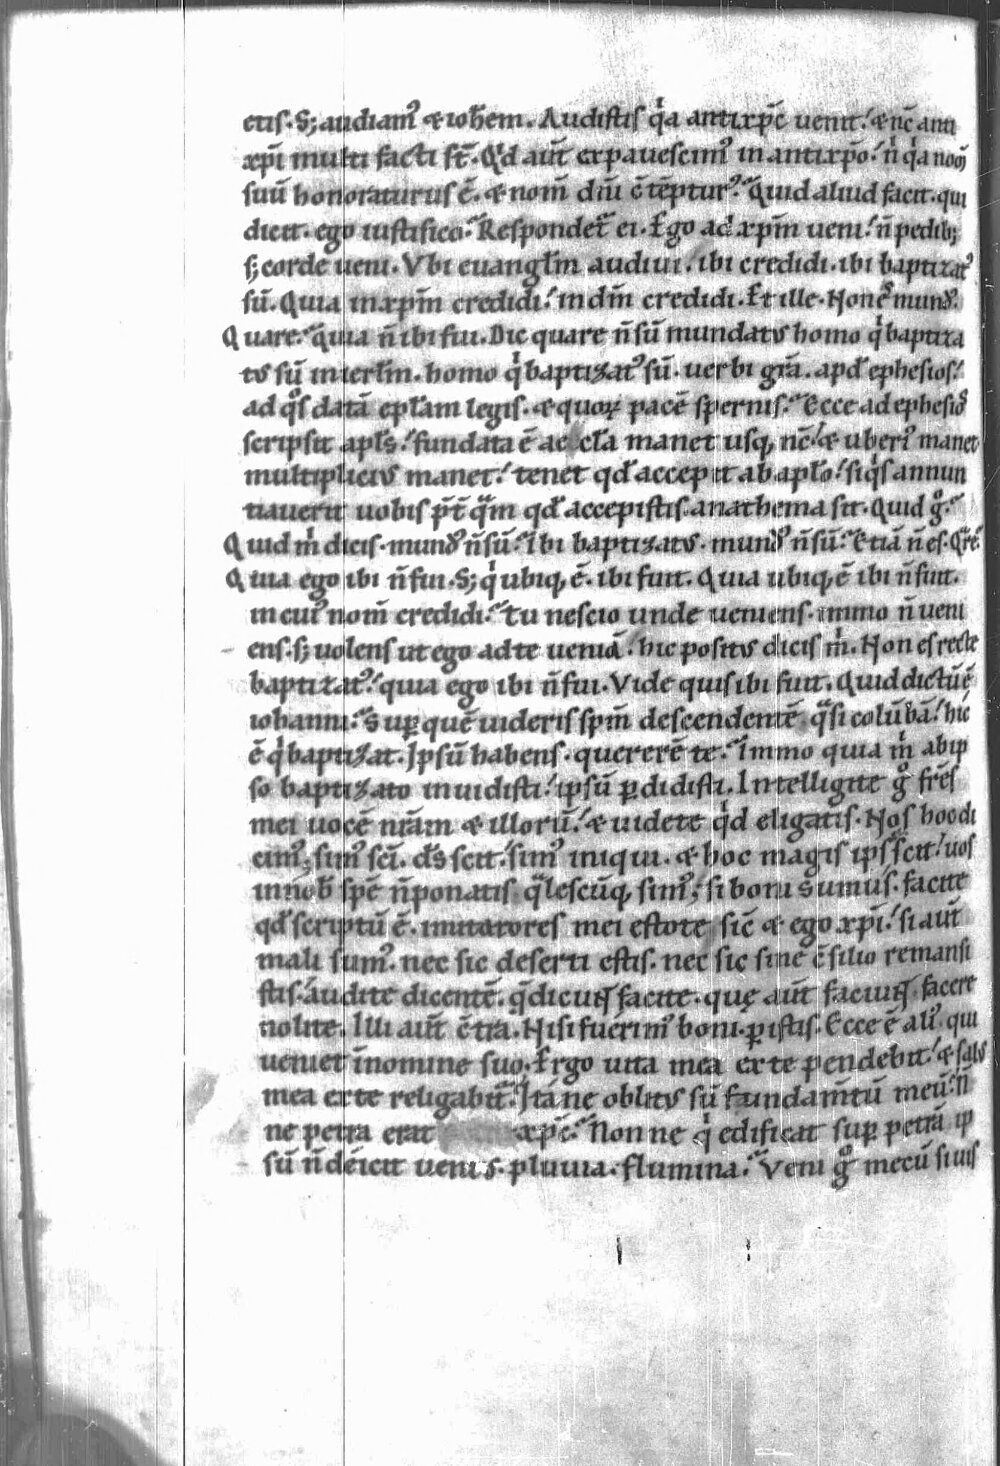 ctis. S; audiam᷒ & ioh̄em. Audistis q̇a antixp̄c uenit.' & nc̄ anti
xp̄i multi facti st̄. Qͥd aut̄ expauescim᷒ in antixp̄o.' n̄ q̇a nom̄
suū honoraturus ē. & nom̄ dn̄i c̄tēptur᷒. Quid aliud facit. qui
dicit. ego iustifico. Respondet᷑ ei. Ergo ad xp̄m ueni.' n̄ pedib;
s; corde ueni. Vbi euangl̄m audiui. ibi credidi. ibi baptizat᷒
sū. Quia in xp̄m credidi.' in dm̄ credidi. Et ille. Non es mund᷒.
Quare. quia n̄ ibi fui. Dic quare n̄ sū mundatus homo qͥ baptiza
tus sū in ierl̄m. homo qͥ baptizat᷒ sū. uerbi grā. apd̄ ephesios.'
ad qͦs datā epl̄am legis. & quoꝝ pacē spernis. Ecce ad ephesios
scripsit apl̄s.' fundata ē aeccl̄a manet usq; nc̄.' & uberi᷒ manet
multiplicius manet.' tenet qd̄ accepit ab apl̄o.' si qͥs annun
tiauerit uobis p̄t̄ qᵃm qd̄ accepistis. anathema sit. Quid gͦ.
Quid m̄ dicis. mund᷒ n̄ sū. Ibi baptizatus. mund᷒ n̄ sū. Etiā n̄ es. Qᵃre.
Quia ego ibi n̄ fui. S; qͥ ubiq; ē. ibi fuit. Quia ubiq; ē ibi n̄ fuit.
in cui᷒ nom̄ credidi. Tu nescio unde ueniens. immo n̄ ueni
ens. s; uolens ut ego ad te ueniā.' hic positus dicis m̄. Non es recte
baptizat᷒.' quia ego ibi n̄ fui. Vide quis ibi fuit. Quid dictū ē
iohanni. Sup̱ quē uideris sp̄m descendentē qᵃsi colūbā.' hic
ē qͥ baptizat. Ipsū habens. quererē te. Immo quia m̄ ab ip
so baptizato inuidisti.' ipsū p̱didisti. Intelligite gͦ fr̄es
mei uocē nr̄am & illorū.' & uidete qͥd eligatis. Nos hoc di
cim᷒; sim᷒ sc̄i. ds̄ scit.' sim᷒ iniqui. & hoc magis ips̄ scit.' uos
in nob̄ spē n̄ ponatis. qᵃlescūq; sim᷒; si boni sumus. facite
qd̄ scriptū ē. imitatores mei estote sic̄ & ego xp̄i.' si aut̄
mali sum᷒. nec sic deserti estis. nec sic sine c̄silio remansi
stis. audite dicentē. q̄ dicunt facite. quę aut̄ faciunt. facere
nolite. Illi aut̄ c̄tra. Nisi fuerim᷒ boni. p̱istis. Ecce ē ali᷒ qui
ueniet in nomine suo. Ergo uita mea ex te pendebit.' & salus
mea ex te religabit᷑. Itane oblitus sū fundam̄tū meū. n̄
ne petra erat xp̄c. Nonne qͥ edificat sup̱ petrā ip
sū n̄ deicit uenis. pluuia. flumina. Veni gͦ mecū si uis